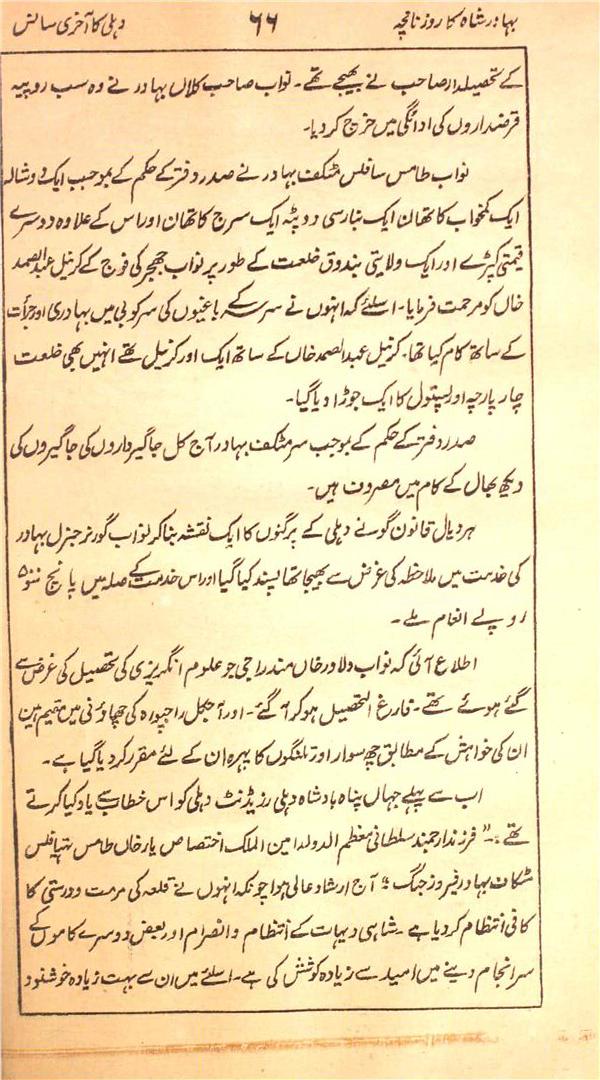 بہادر شاہ کا روزنامچہ ۶۶ دہلی کا آخری سانس
کے تحصیلدار صاحب نے بھیجے تھے۔ نواب صاحب کلاں بہادر نے وہ سب روپیہ
قرضداروں کی ادائگی میں خرچ کر دیا۔
نواب طامس سافلس مٹکف بہادر نے صدر دفتر کے حکم کے بموجب ایک دوشالہ
ایک کمخواب کا تھان ایک بنارسی دوپٹہ ایک سرج کا تھان اور اس کے علاوہ دوسرے
قیمتی کپڑے اور ایک ولایتی بندوق خلعت کے طور پر نواب جھجر کی فوج کے کرنیل عبدالصمد
خاں کو مرحمت فرمایا۔ اسلئے کہ انہوں نے سرسہ کے باغیوں کی سرکوبی میں بہادری اور جرأت
کے ساتھ کام کیا تھا۔ کرنیل عبدالصمد خاں کے ساتھ ایک اور کرنیل تھے انہیں بھی خلعت
چار پارچہ اور پستول کا ایک جوڑا دیا گیا۔
صدر دفتر کے حکم کے بموجب سر مٹکف بہادر آج کل جاگیرداروں کی جاگیروں کی
دیکھ بھال کے کام میں مصروف ہیں۔
ہردیال قانون گو نے دہلی کے پرگنوں کا ایک نقشہ بنا کر نواب گورنر جنرل بہادر
کی خدمت میں ملاحظہ کی غرض سے بھیجا تھا پسند کیا گیا اور اس خدمت کے صلہ میں پانچ سو
روپے انعام ملے۔
اطلاع آئی کہ نواب دلاور خاں مندراجی جو علوم انگریزی کی تحصیل کی غرض سے
گئے ہوئے تھے۔ فارغ التحصیل ہو کر آ گئے۔ اور آجکل راجپورہ کی چھاؤنی میں مقیم ہیں
ان کی خواہش کے مطابق چھ سوار اور تلنگوں کا پہرہ ان کے لئے مقرر کر دیا گیا ہے۔
اب سے پہلے جہاں پناہ بادشاہ دہلی رزیڈنٹ دہلی کو اس خطاب سے یاد کیا کرتے
تھے:۔ "فرزند ارجمند سلطانی معظم الدولہ امین الملک اختصاص یار خاں طامس تہیافلس
مٹکاف بہادر فیروز جنگ" آج ارشاد عالی ہوا چونکہ انہوں نے قلعہ کی مرمت و درستی کا
کافی انتظام کر دیا ہے۔ شاہی دیہات کے انتظام و انصرام اور بعض دوسرے کاموں کے
سرانجام دینے میں امید سے زیادہ کوشش کی ہے۔ اسلئے میں ان سے بہت زیادہ خوشنود